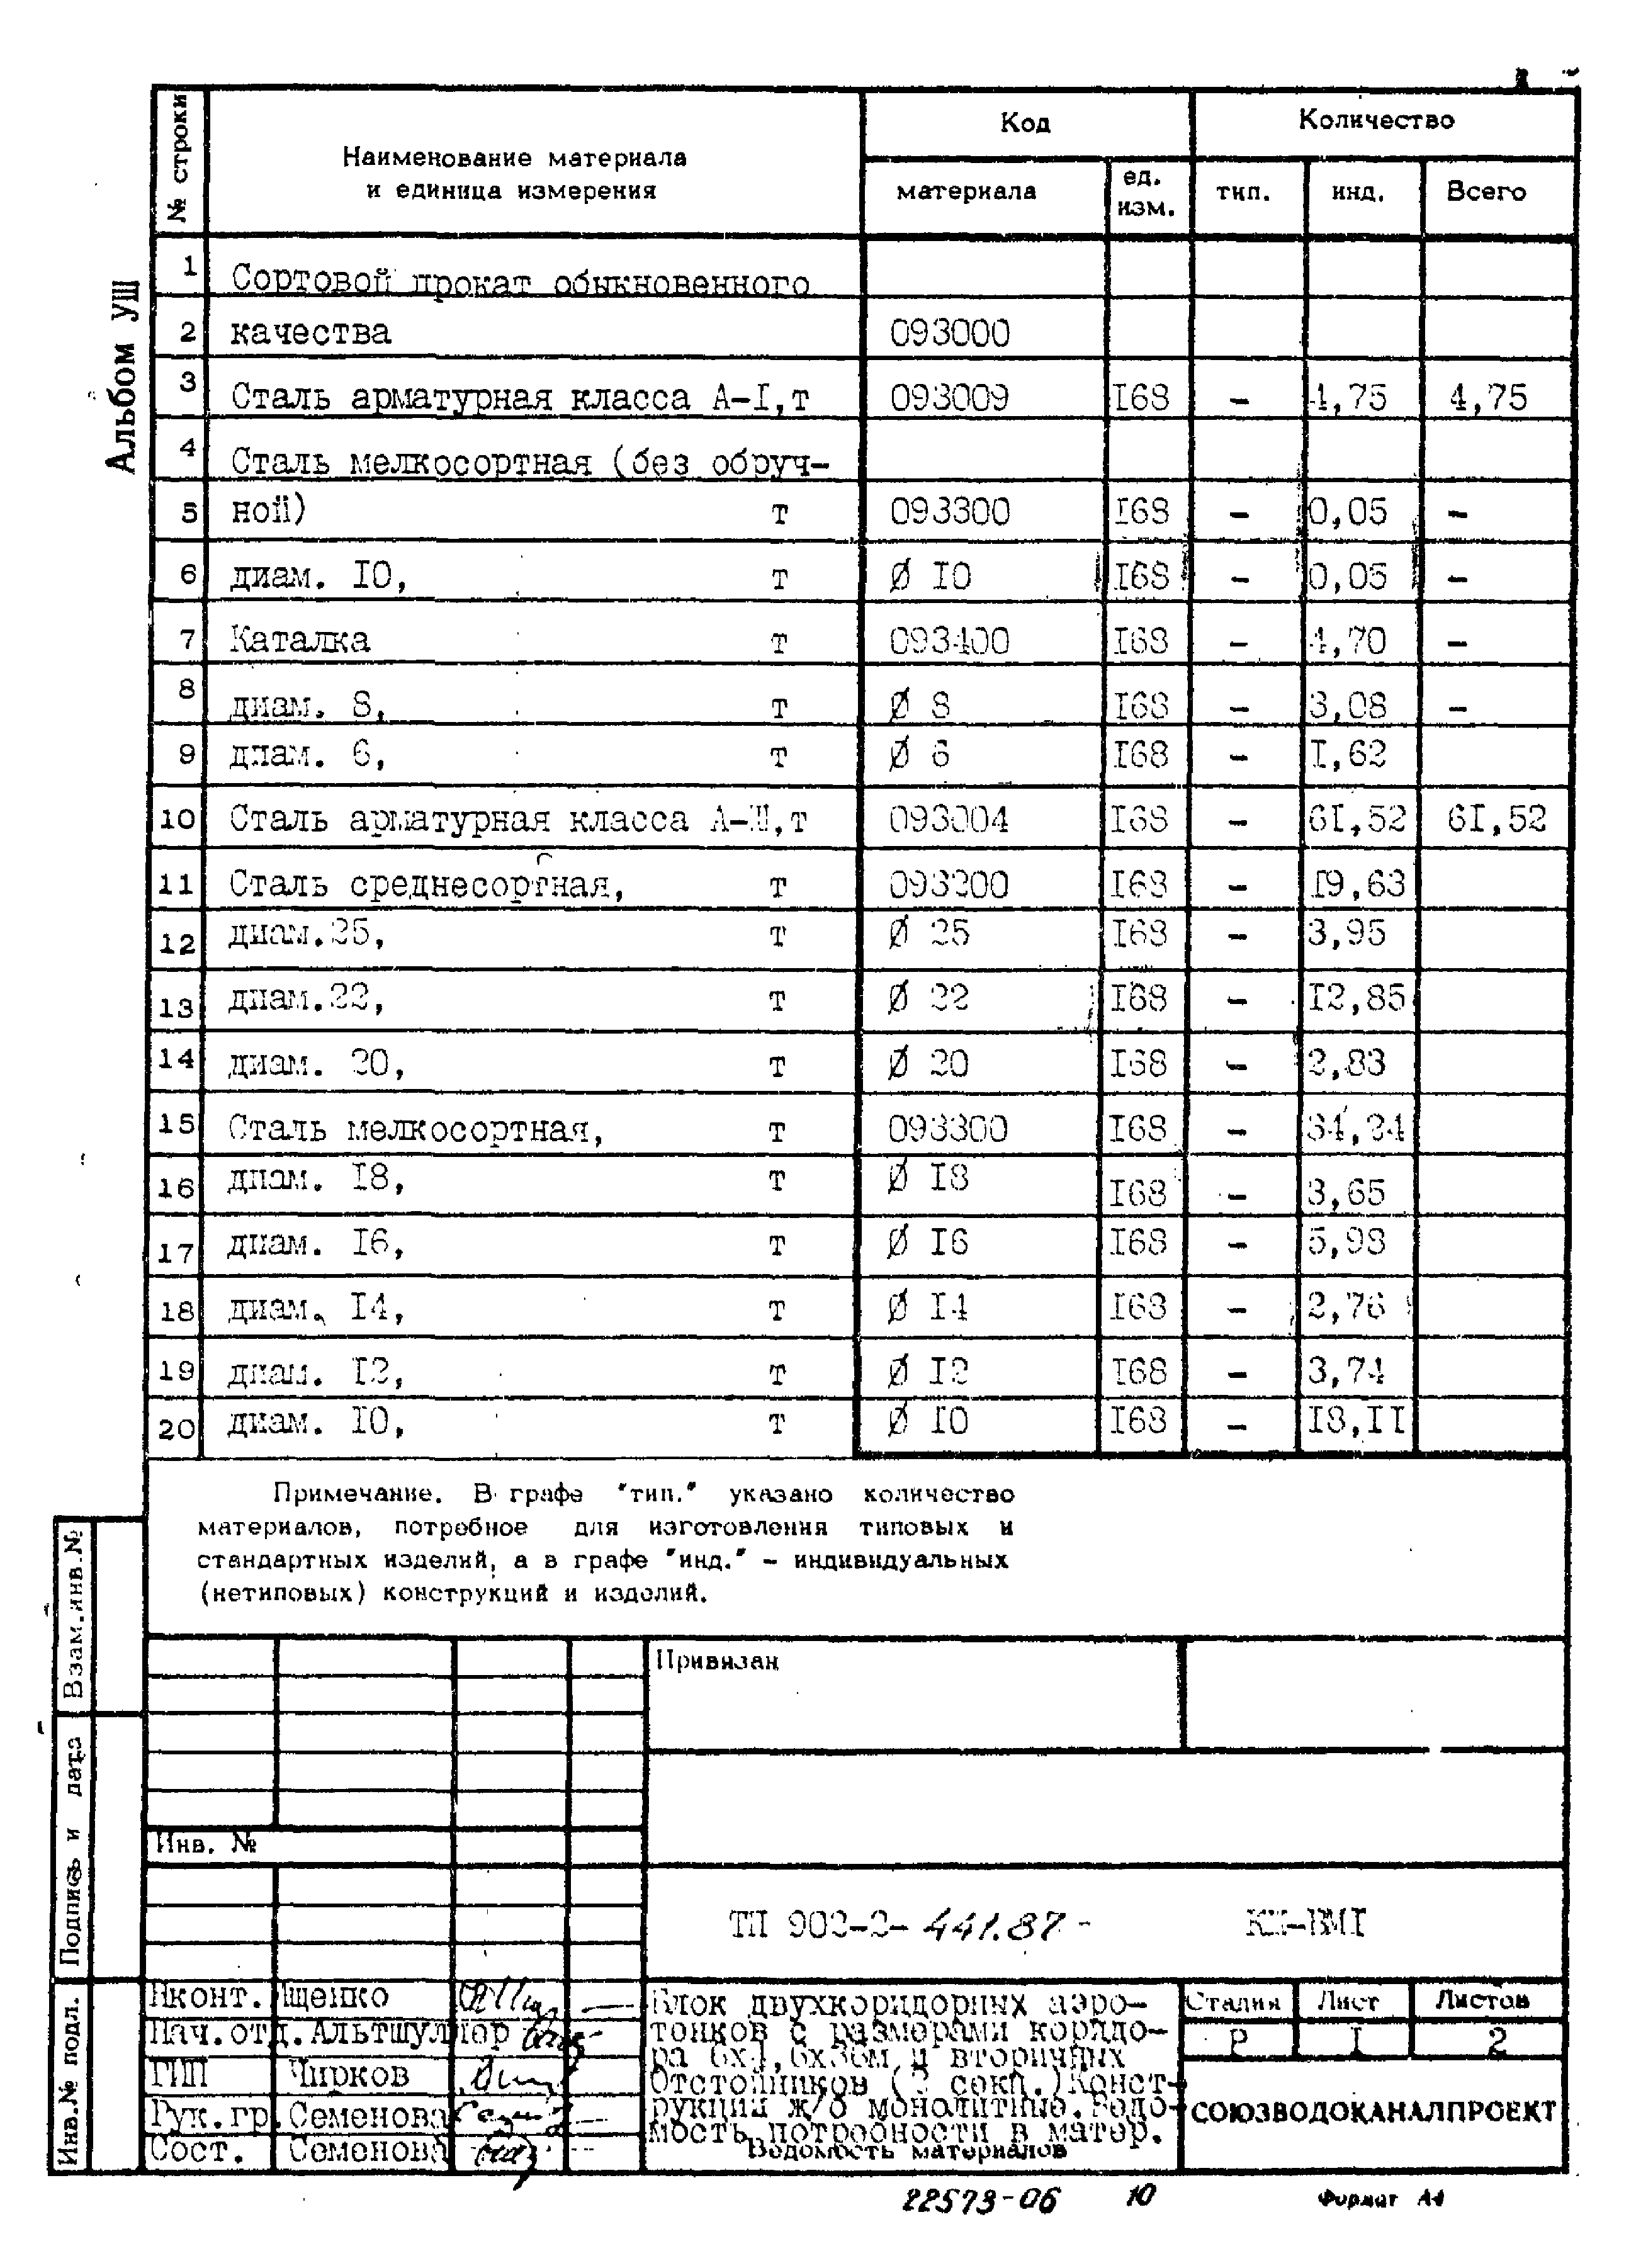 Альбом УШ
№ строки
Наименование материала
и единица измерения
Код
Количество
материала
ед.
изм.
тип.
инд.
Всего
1 Сортовой прокат обыкновенного
2 качества 093000
3 Сталь арматурная класса А-I,т 093009 I68 - 4,75 4,75
4 Сталь мелкосортная (без обруч-
5 ной) т 093300 I68 - 0,05 -
6 диам. I0, т Ø I0 I68 - 0,05 -
7 Каталка т 093400 I68 - 4,70 -
8 диам. 8, т Ø 8 I68 - 3,08 -
9 диам. 6, т Ø 6 I68 - I,62
10 Сталь арматурная класса А-Ш,т 093004 I68 - 6I,52 6I,52
11 Сталь среднесортная, т 093200 I68 - I9,63
12 диам.25, т Ø 25 I68 - 3,95
13 диам.22, т Ø 22 I68 - I2,85
14 диам. 20, т Ø 20 I68 - 2,83
15 Сталь мелкосортная, т 093300 I68 - 34,24
16 диам. I8, т Ø I8 I68 - 3,65
17 диам. I6, т Ø I6 I68 - 5,98
18 диам. I4, т Ø I4 I68 - 2,76
19 диам. I2, т Ø I2 I68 - 3,74
20 диам. I0, т Ø I0 I68 - I8,II
Примечание. В графе "тип." указано количество
материалов, потребное для изготовления типовых и
стандартных изделий, а в графе "инд." - индивидуальных
(нетиповых) конструкций и изделий.
Взам.инв.№
Подпись и дата
Инв.№ подл.
Привязан
Инв. №
ТП 902-2-441.87- КЖ-ВМI
Нконт. Ищенко
Нач.отд. Альтшуллер
ГИП Чирков
Рук.гр. Семенова
Сост. Семенова
Блок двухкоридорных аэро-
тонков с размерами коридо-
ра 6х4,6х36м и вторичных
Отстойников ( секц.)Конст-
рукции ж/б монолитные.Ведо-
мость потребности в матер.
Ведомость материалов
Стадия Лист Листов
Р I 2
СОЮЗВОДОКАНАЛПРОЕКТ
22573-06 10 Формат А4